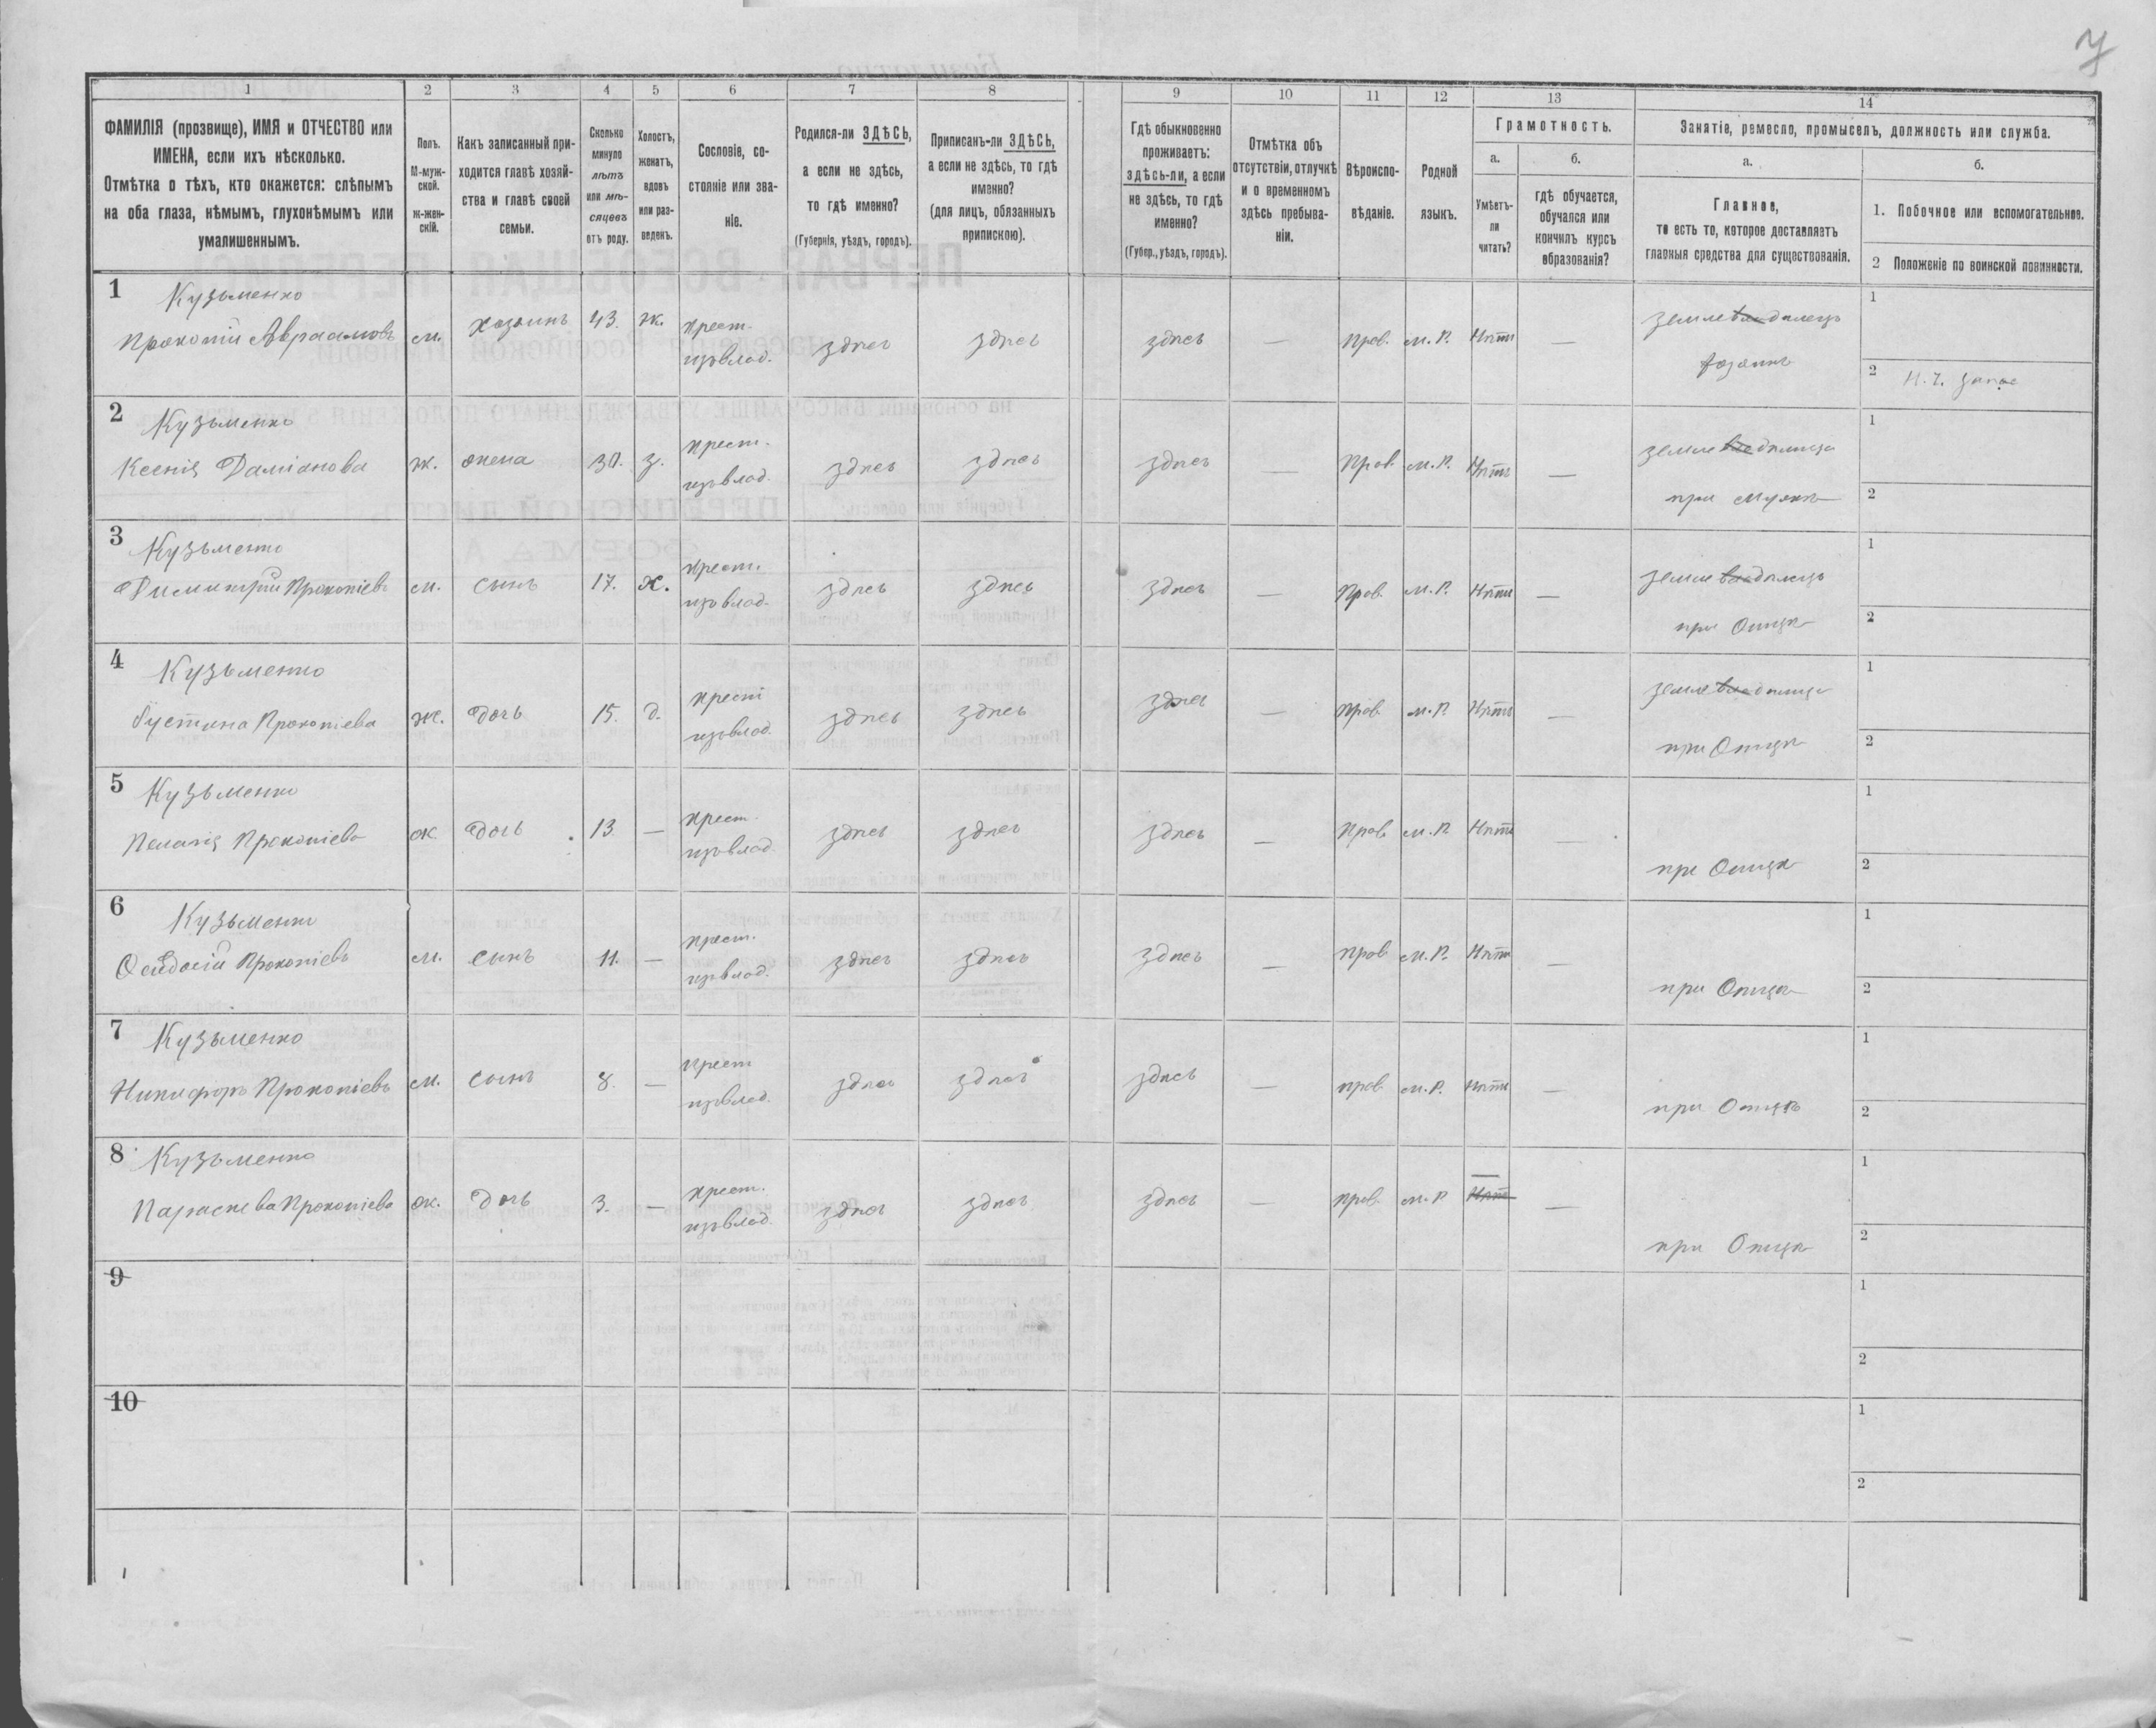 7
1 2 3 4 5 6 7 8 9 10 11 12 13 14
ФАМИЛІЯ (прозвище), ИМЯ и ОТЧЕСТВО или
ИМЕНА, если ихъ нѣсколько.
Отмѣтка о тѣхъ, кто окажется: слѣпымъ
на оба глаза, нѣмымъ, глухонѣмымъ или
умалишеннымъ.
Полъ.
М-муж-
ской.
ж-жен-
скій.
Какъ записанный при-
ходится главѣ хозяй-
ства и главѣ своей
семьи.
Сколько
минуло
лѣтъ
или мѣ-
сяцевъ
отъ роду.
Холостъ,
женатъ,
вдовъ
или раз-
веденъ.
Сословіе, со-
стояніе или зва-
ніе.
Родился-ли ЗДѢСЬ,
а если не здѣсь,
то гдѣ именно?
(Губернія, уѣздъ, городъ).
Приписанъ-ли ЗДѢСЬ,
а если не здѣсь, то гдѣ
именно?
(для лицъ, обязанныхъ
припискою).
Гдѣ обыкновенно
проживаетъ:
здѣсь-ли, а если
не здѣсь, то гдѣ
именно?
(Губер., уѣздъ, городъ).
Отмѣтка объ
отсутствіи, отлучкѣ
и о временномъ
здѣсь пребыва-
ніи.
Вѣроиспо-
вѣданіе.
Родной
языкъ.
Грамотность.
а.
Умѣетъ-
ли
читать?
б.
гдѣ обучается,
обучался или
кончилъ курсъ
образованія?
Занятіе, ремесло, промыселъ, должность или служба.
а.
Главное,
то есть то, которое доставляетъ
главныя средства для существованія.
б.
1. Побочное или вспомогательное.
2 Положеніе по воинской повинности.
1 Кузьменко
Прокопій Авраамовъ м. хозяинъ 43. ж. крест. изъ влад. здѣсь здѣсь здѣсь — Прав. м. Р. Нѣтъ — земледѣлецъ
хозяинъ
1
2
2 Кузьменко
Ксенія Даміанова ж. жена 30. з. крест. изъ влад. здѣсь здѣсь здѣсь — Прав. м. Р. Нѣтъ —
при мужѣ
1
2
3 Кузьменко
Димитрій Прокопіевъ м. сынъ 17. х. крест. изъ влад. здѣсь здѣсь здѣсь — Прав. м. Р. Нѣтъ — земледѣлецъ
при Отцѣ
1
2
4 Кузьменко
Іустина Прокопіева ж. дочь 15. д. крест изъ влад. здѣсь здѣсь здѣсь — Прав. м. Р. Нѣтъ —
при Отцѣ
1
2
5 Кузьменко
Пелагія Прокопіева ж дочь 13 — крест. изъ влад. здѣсь здѣсь здѣсь — Прав. м. Р Нѣтъ —
при Отцѣ
1
2
6 Кузьменко
Прокопіевъ м. сынъ 11. — крест. изъ влад. здѣсь здѣсь здѣсь — прав. м. Р. Нѣтъ —
при Отцѣ
1
2
7 Кузьменко
Никифоръ Прокопіевъ м. сынъ 8. — крест изъ влад. здѣсь здѣсь здѣсь — прав. м. Р. Нѣтъ —
при Отцѣ
1
2
8 Кузьменко
Параскева Прокопіева ж. дочь 3. — крест. изъ влад. здѣсь здѣсь здѣсь — прав. м. Р — Нѣтъ —
при Отцѣ
1
2
9
1
2
10
1
2